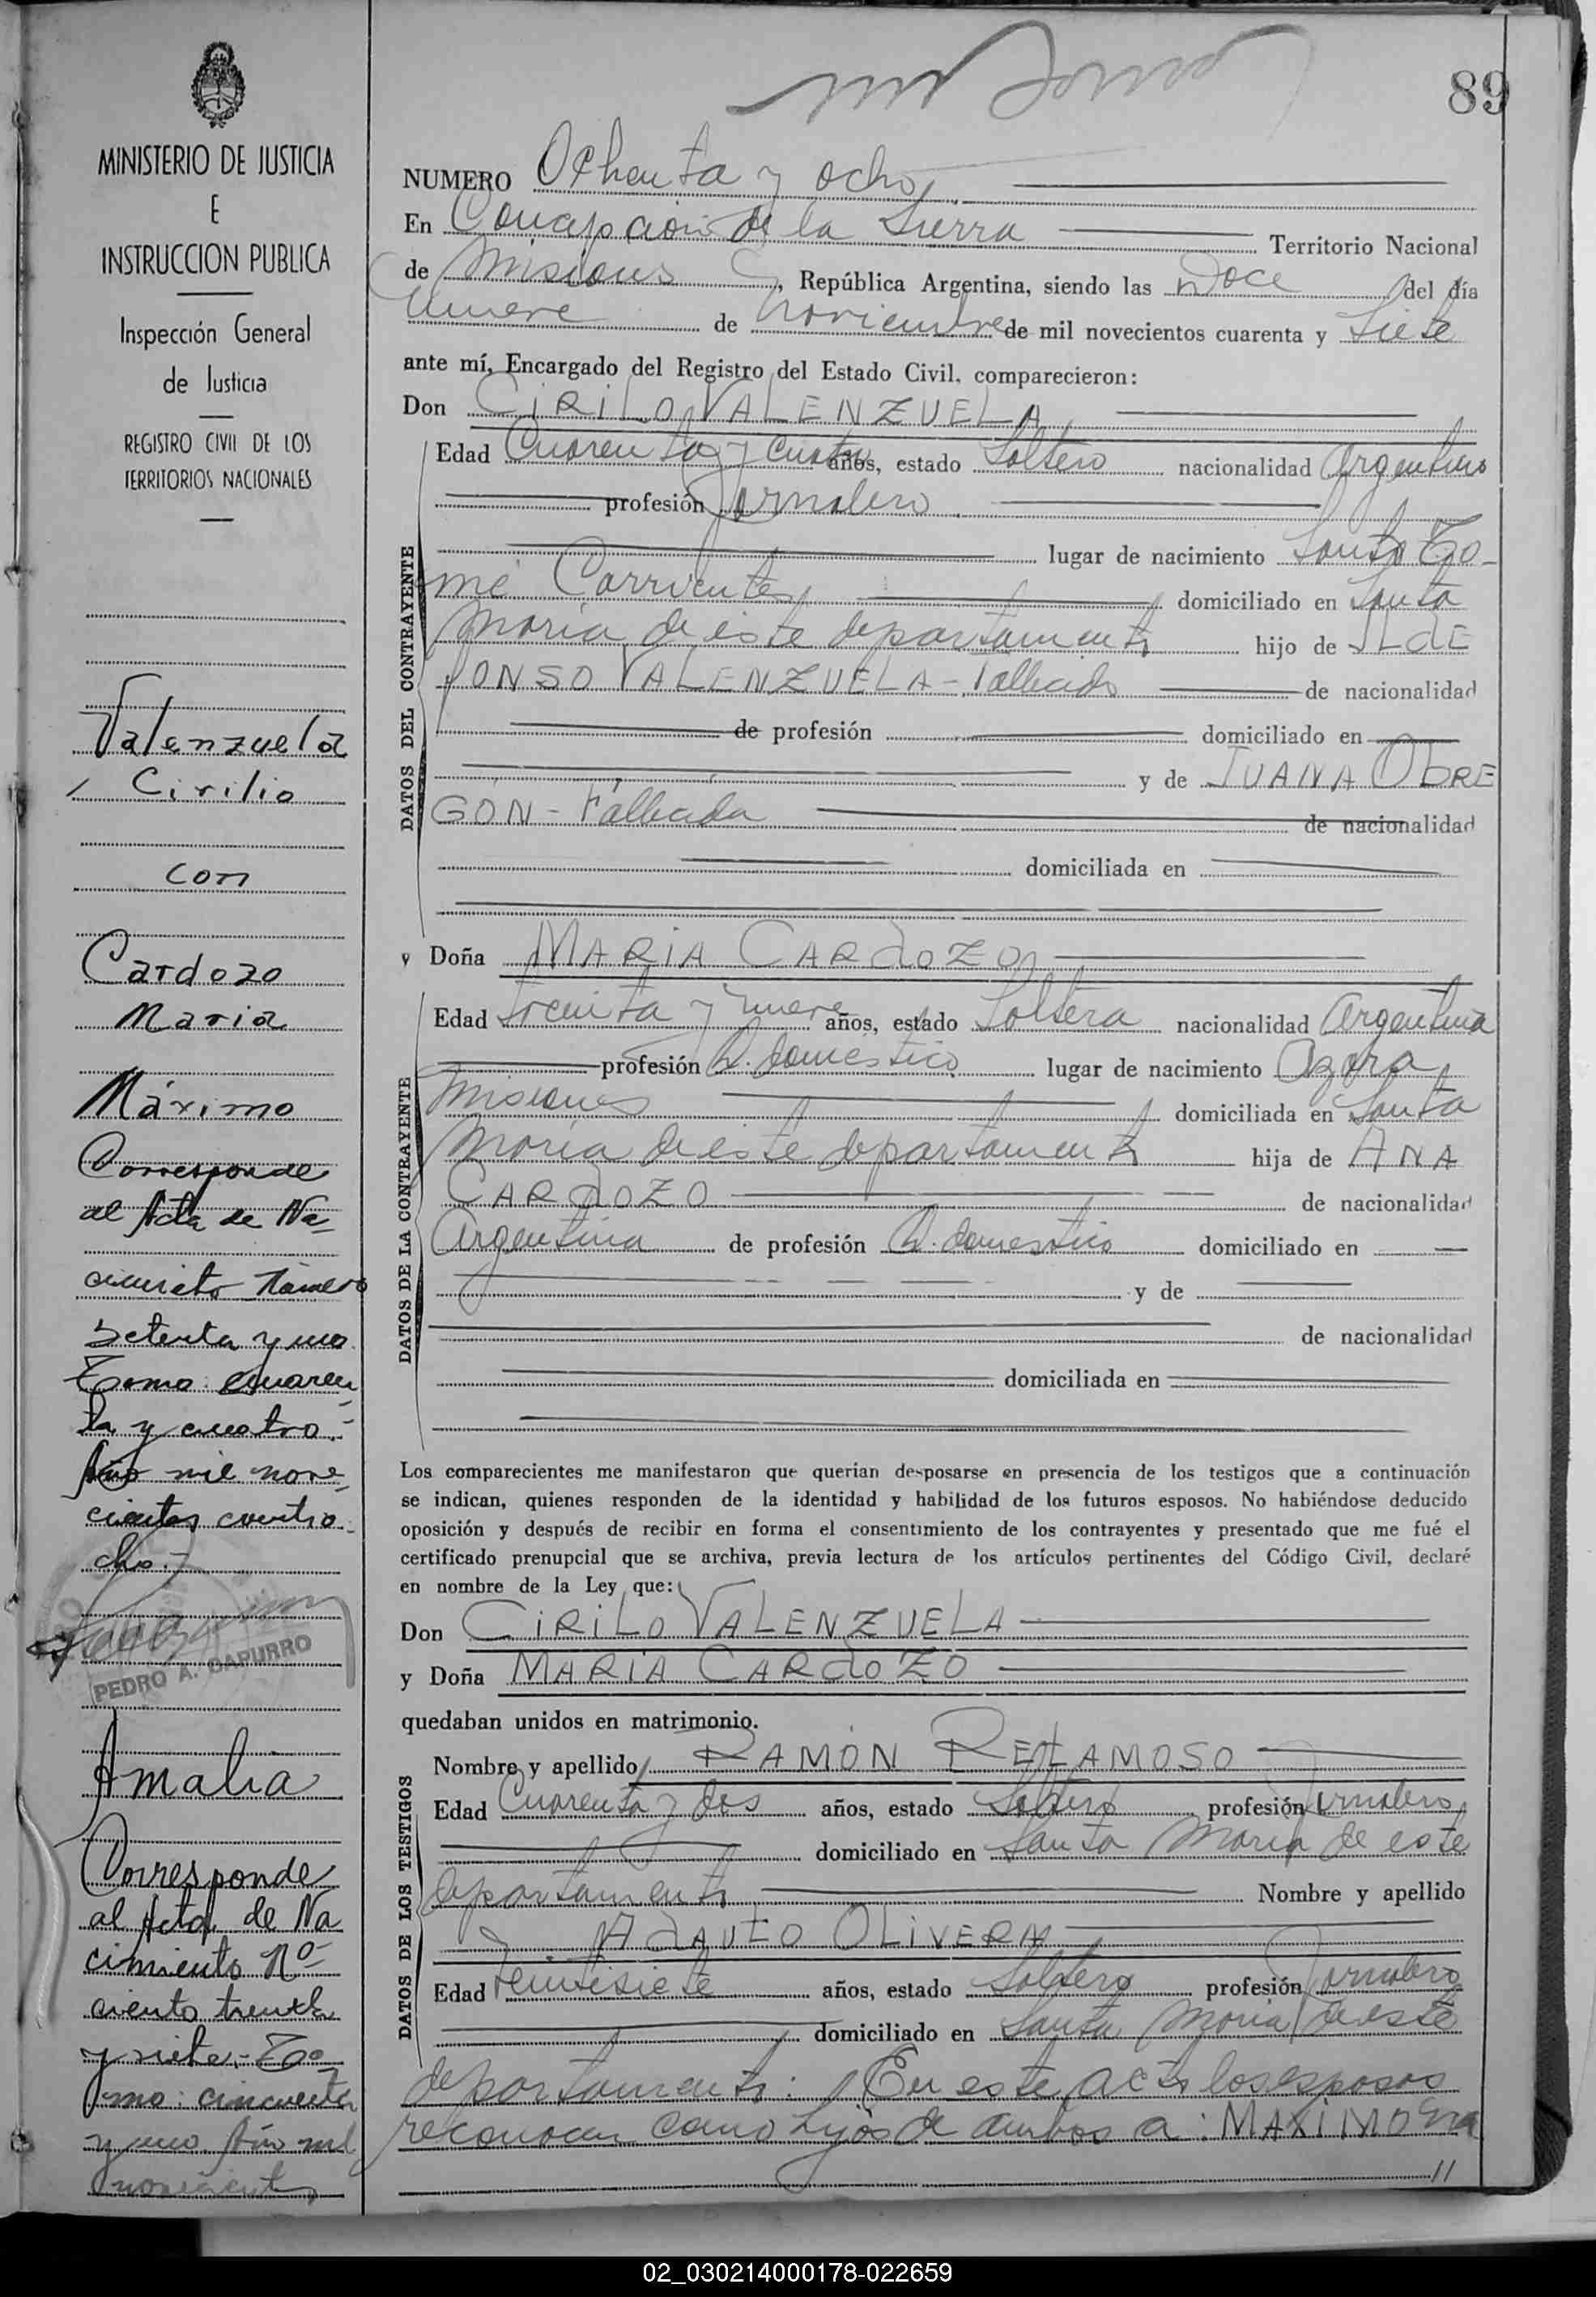 89
MINISTERIO DE JUSTICIA
E
INSTRUCCION PUBLICA
Inspección General
de Justicia
REGISTRO CIVIL DE LOS
TERRITORIOS NACIONALES
Valenzuela
Cirilio
con
Cardozo
Maria
Máximo
Corresponde
al Acta de Na-
cimiento Número
Setenta y uno
Tomo: cuaren-
ta y cuatro.-
Año mil nove-
cientos cuatro
cho.-
PEDRO A. CAPURRO
Amalia
Corresponde
al Acta de Na
cimiento Nº
ciento treinta
y siete.- To-
mo: cincuenta
y uno Año mil
novecientos
NUMERO Ochenta y ocho
En Concepción de la Sierra Territorio Nacional
de Misiones, República Argentina, siendo las Doce del día
Nueve de Noviembre de mil novecientos cuarenta y Siete
ante mí, Encargado del Registro del Estado Civil, comparecieron:
Don CIRILO VALENZUELA
DATOS DEL CONTRAYENTE
Edad Cuarenta y cuatro años, estado Soltero nacionalidad Argentino
profesión Jornalero
lugar de nacimiento Santo To-
mé Corrientes domiciliado en Santa
María de este departamento hijo de ILDE
FONSO VALENZUELA - Fallecido de nacionalidad
de profesión domiciliado en
y de JUANA OBRE
GÓN - Fallecida de nacionalidad
domiciliada en
y Doña MARIA CARDOZO
DATOS DE LA CONTRAYENTE
Edad treinta y nueve años, estado Soltera nacionalidad Argentina
profesión Q. doméstico lugar de nacimiento Azara
Misiones domiciliada en Santa
María de este departamento hija de ANA
CARDOZO de nacionalidad
Argentina de profesión Q. doméstico domiciliado en
y de
de nacionalidad
domiciliada en
Los comparecientes me manifestaron que querían desposarse en presencia de los testigos que a continuación
se indican, quienes responden de la identidad y habilidad de los futuros esposos. No habiéndose deducido
oposición y después de recibir en forma el consentimiento de los contrayentes y presentado que me fué el
certificado prenupcial que se archiva, previa lectura de los artículos pertinentes del Código Civil, declaré
en nombre de la Ley que:
Don CIRILO VALENZUELA
y Doña MARIA CARDOZO
quedaban unidos en matrimonio.
DATOS DE LOS TESTIGOS
Nombre y apellido RAMÓN RETAMOSO
Edad Cuarenta y dos años, estado Soltero profesión Jornalero
domiciliado en Santa María de este
departamento Nombre y apellido
ADAUTO OLIVERA
Edad veintisiete años, estado Soltero profesión Jornalero
domiciliado en Santa María de este
departamento: En este acto los esposos
reconocen como hijos de ambos a: MAXIMO
//
02_030214000178-022659